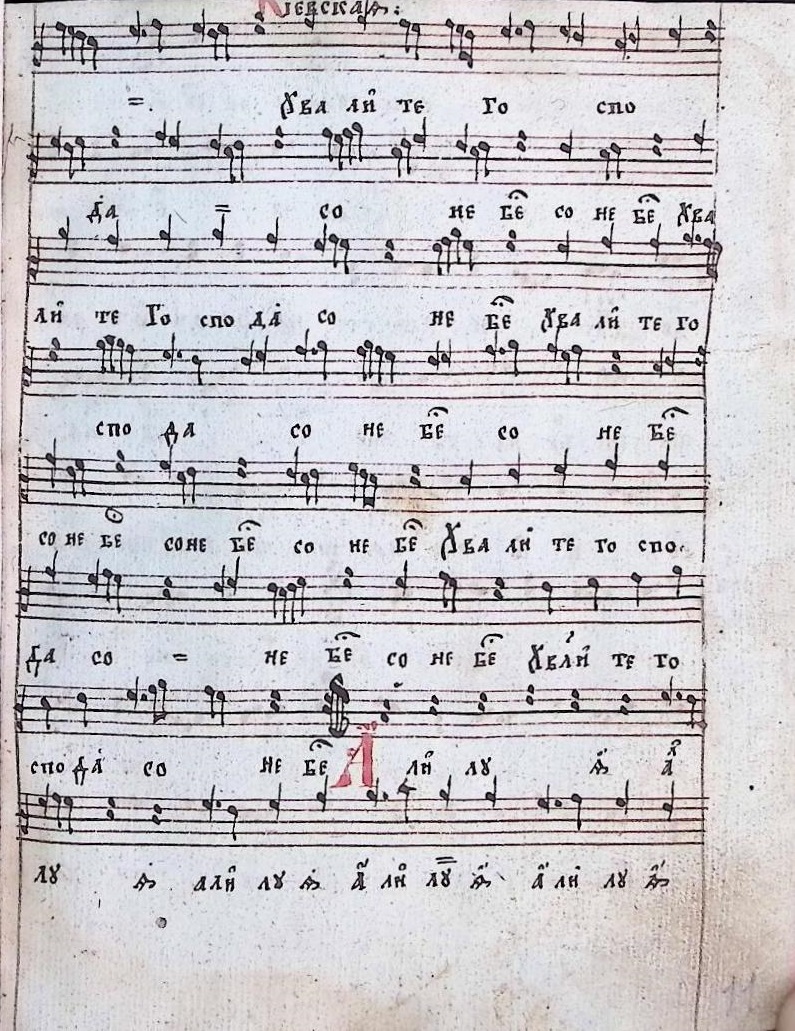 Кіевскаѧ:
=. Хва ли те Го спо
да = со не бе со не бе Хва
ли те Го спо да со не бе Хва ли те го
спо да со не бе со не бе
со не бе соне бе со не бе Хва ли те го спо.
да со = не бе со не бе Хвли те го
спо да со не бе А ли лꙋ ѧ а
лꙋ ѧ али лꙋ ѧ а ли лꙋ ѧ а ли лꙋ ѧ